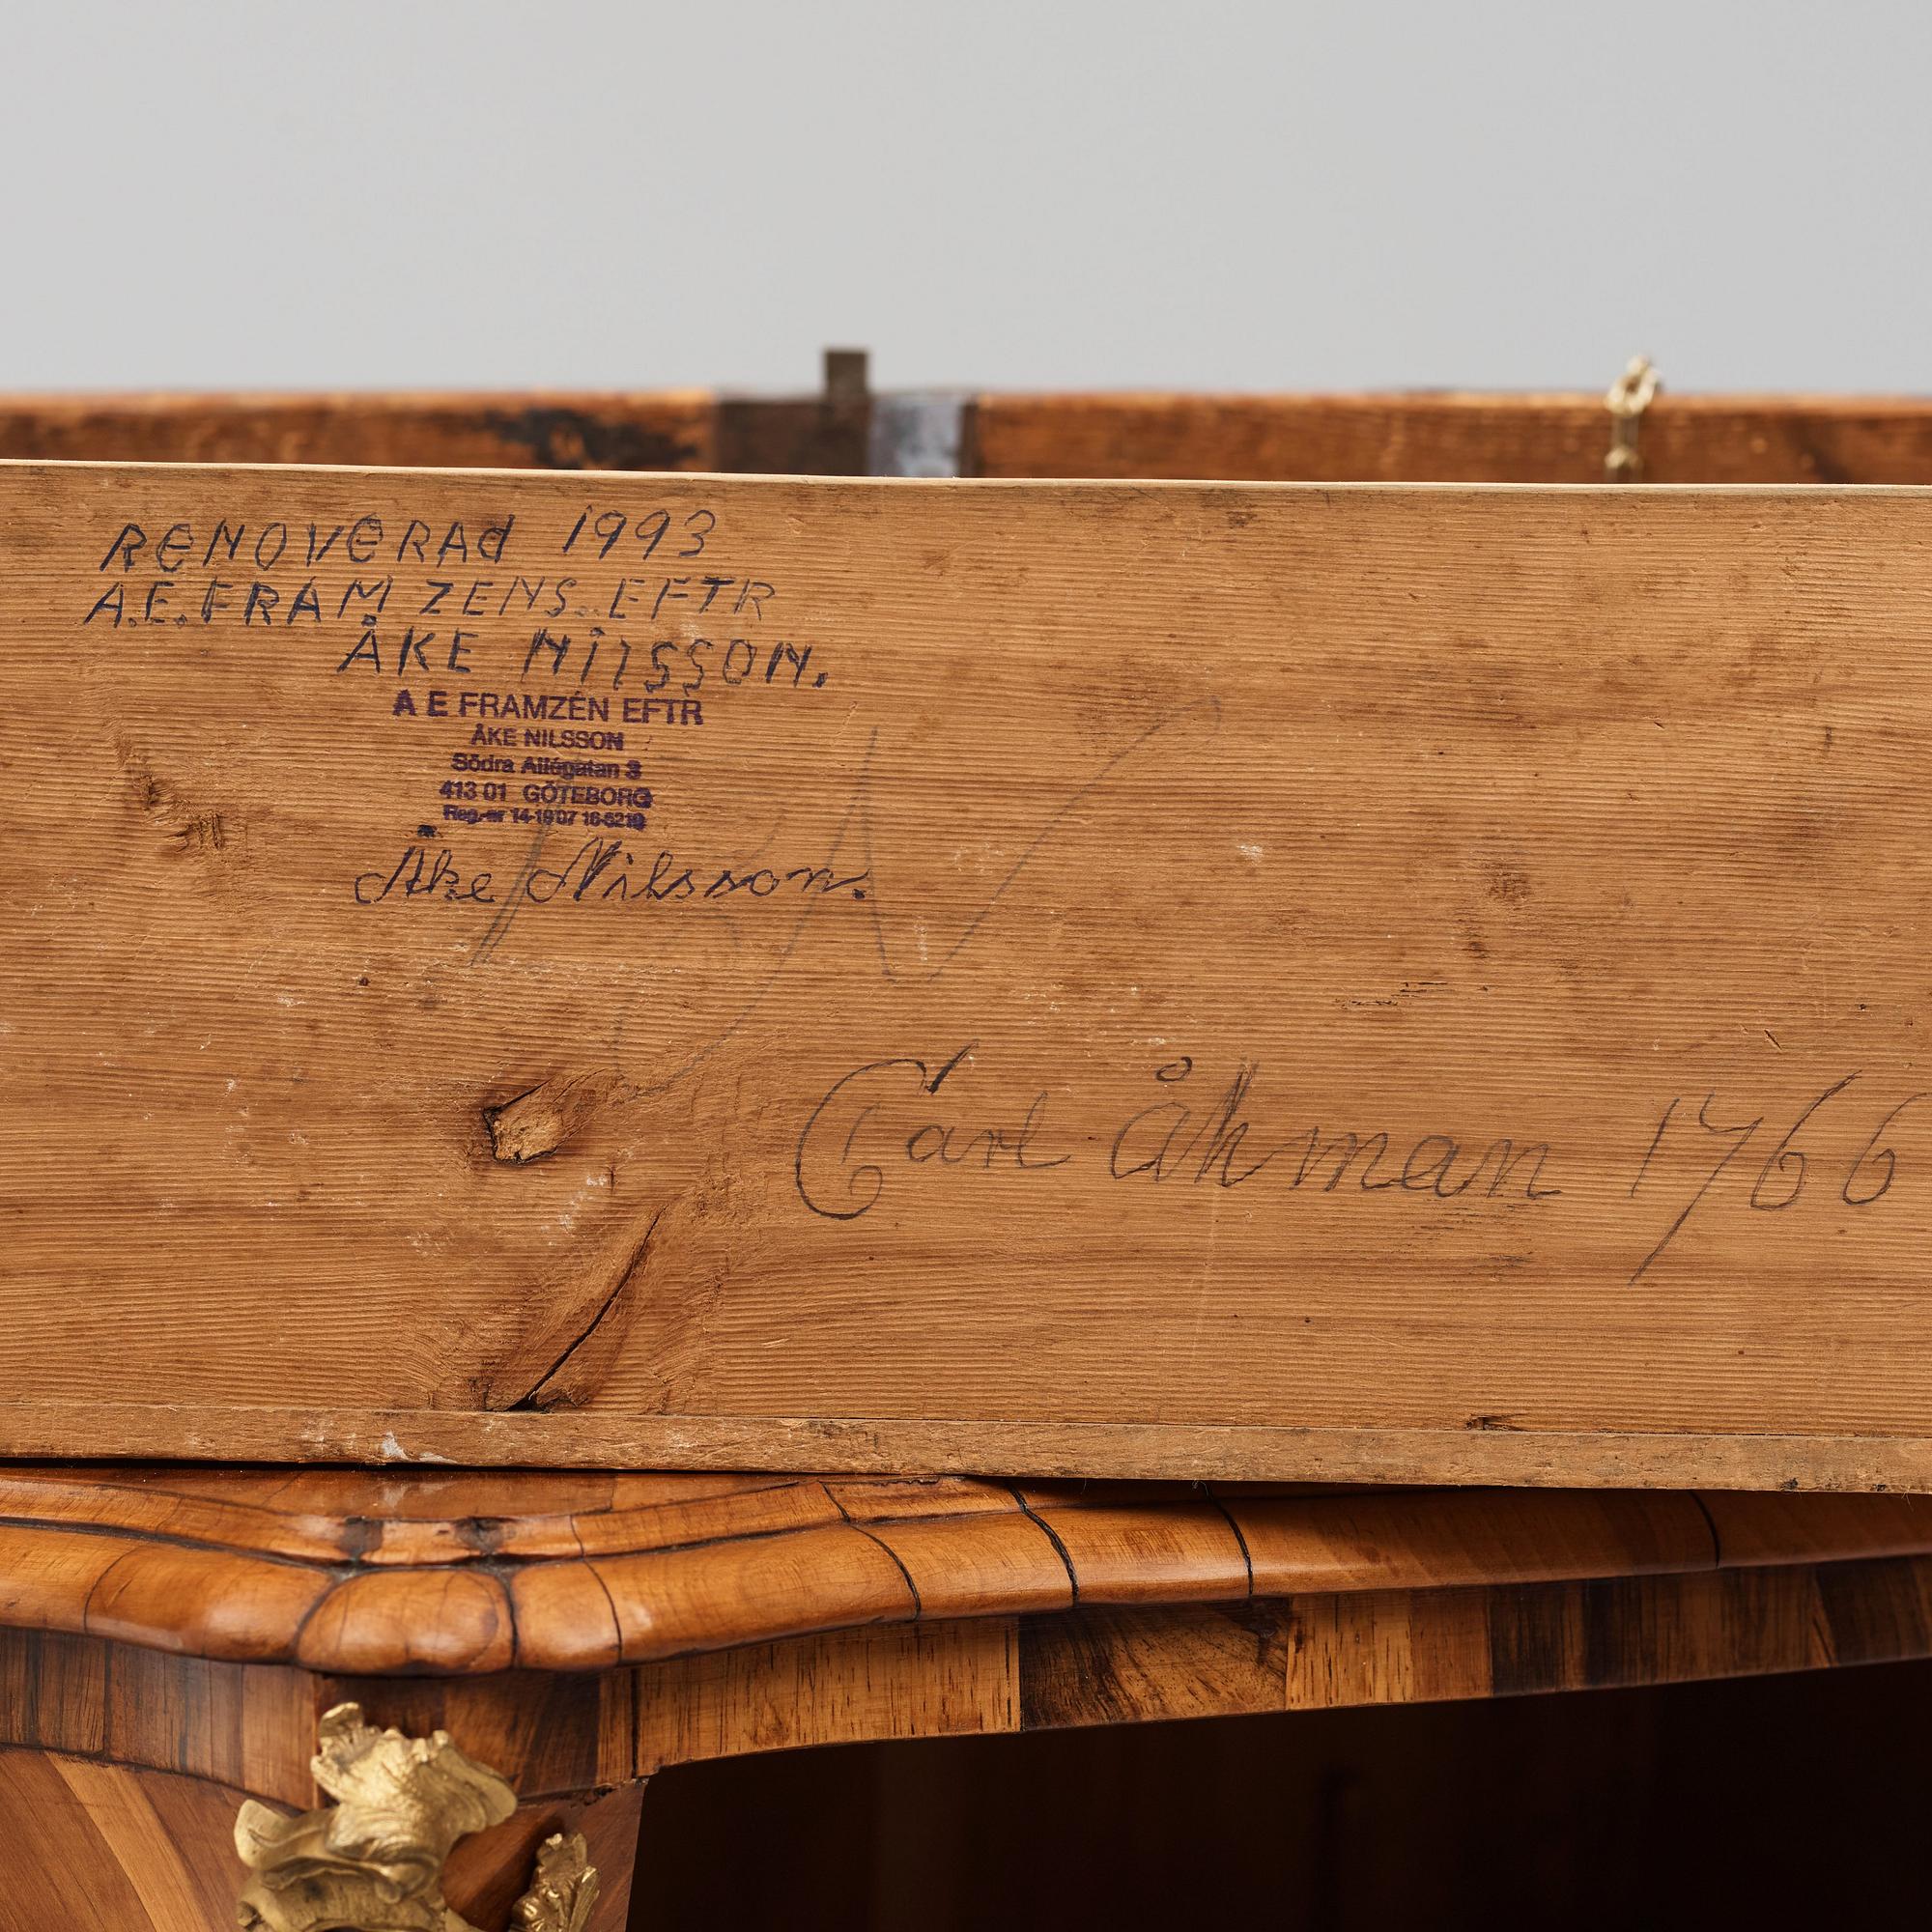 RENOVERAd 1993
A.E. FRAMZENS. EFTR
ÅKE NILSSON.
A E FRAMZÉN EFTR
ÅKE NILSSON
Södra Allégatan 3
413 01 GÖTEBORG
Reg.-nr
Åke Nilsson.
Carl Åhman 1766